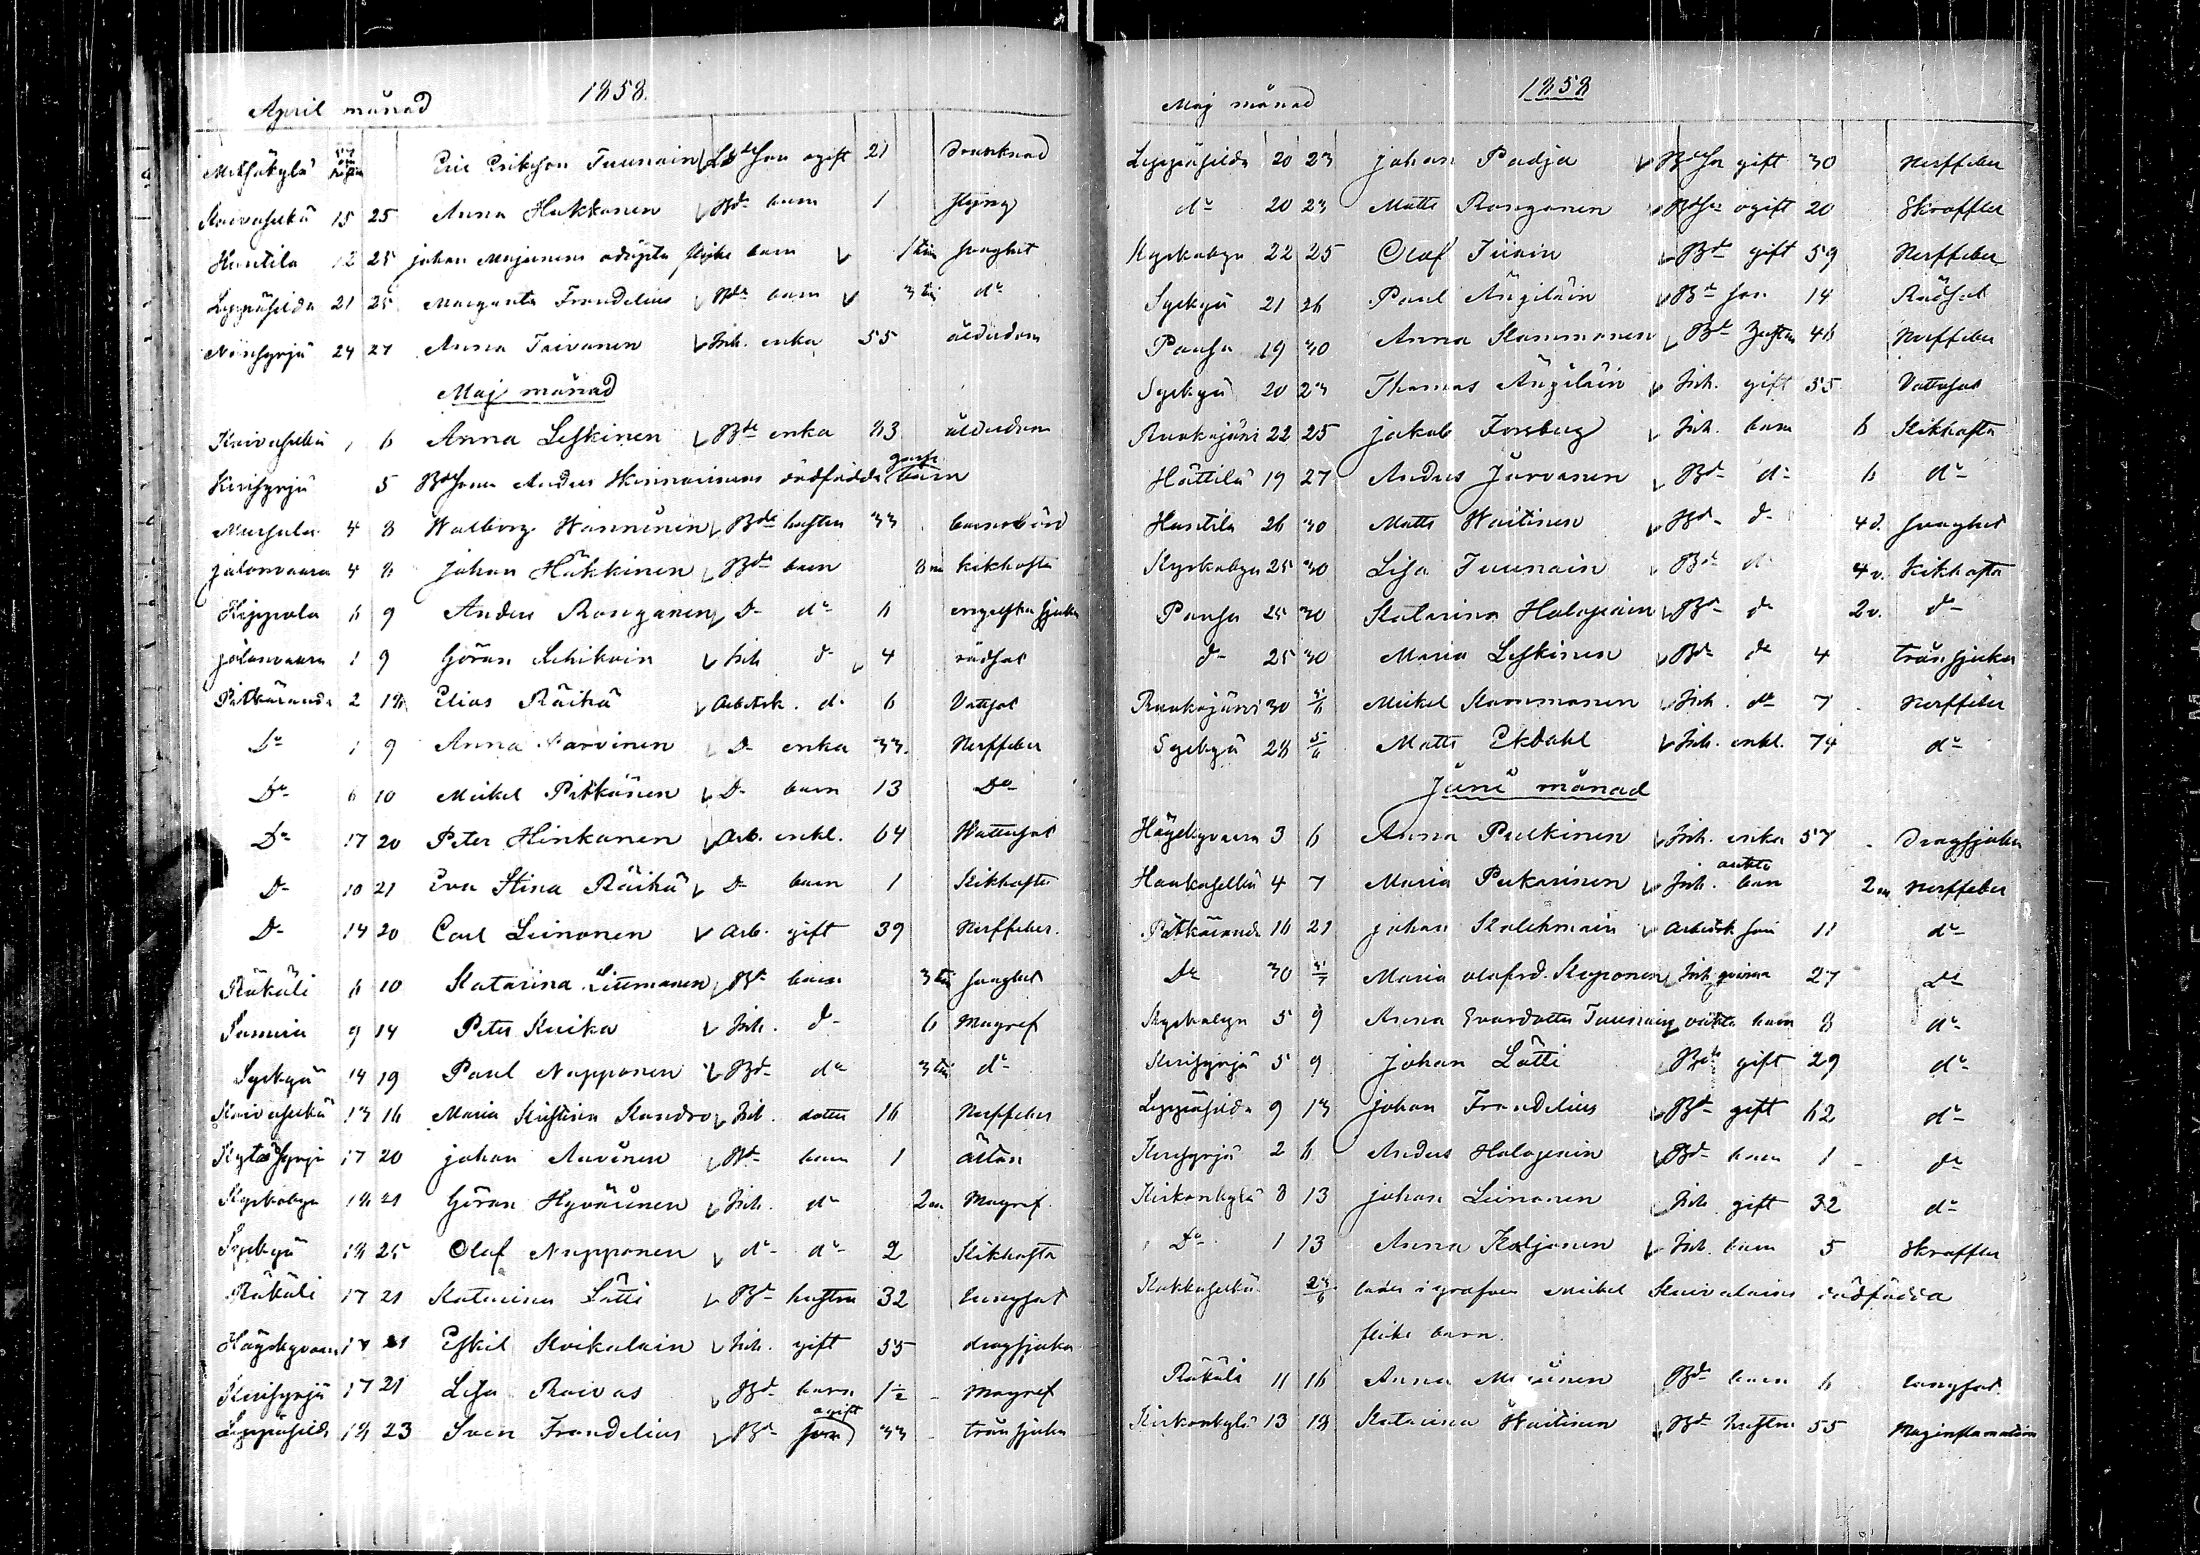 1858.
April månad
Metsäkylä Eric Eriksson Tuunain son ogift 21 drunknad
Koivuselkä 15 25 Anna Hukkanen Bde barn 1 styng
Huntila 12 25 Johan Majurinens odöpta flicke barn 1 tim svaghet
Leppäsilda 21 25 Margareta Frondelius Bde barn 3 tim do
Niinisyrjä 24 27 Anna Taivanen Inh. enka 55 ålderdom
Maj månad
Koivuselkä 1 6 Anna Leskinen Bde enka 83 ålderdom
Kerisyrjä 5 Bdesonen Anders Kinnarinens dödfödda gosse barn
Mursula 4 8 Walborg Wänninen Bde hustru 33 barnsbörd
Jalonvaara 4 8 Johan Häkkinen Bde barn 8 m kikhosta
Hippola 6 9 Anders Ronganen D- do 6 engelska sjukan
Jalonvaara 1 9 Göran Lehikoin Inh d- 4 rödsot
Pitkäranda 2 18 Elias Räihä Arbetsk. d- 6 Vattsot
Do 1 9 Anna Narvinen D- enka 33. Nerffeber
Do 6 10 Mickel Pitkänen D- barn 13 Do
Do 17 20 Peter Hinkanen Arb. enkl. 64 Wattusot
D- 10 21 Eva Stina Räihä D- barn 1 Kikhosta
D- 14 20 Carl Leinonen Arb. gift 39 Nerffeber.
Räkäli 6 10 Katarina Litmanen Bd barn 3 tim svaghet
9 14 Peter Kuika Inh. d- 6 Magref
Syskyä 14 19 Paul Nupponen Bd- do 3 tim d-
Koivuselkä 13 16 Maria Kristina Kondro Inh. dotter 16 Nerffeber
Kytösyrjä 17 20 Johan Auvinen Bd- barn 1 åltan
Kyrkobyn 18 21 Göran Hyvärinen Inh. do 2 m Magref
Syskyä 18 25 Olof Nupponen do do 2 Kikhosta
Räkäli 17 21 Katarina Lätti Bd- hustru 32 lungsot
21 Eskil Koikalain Inh. gift 55 dragsjuka
Kerisyrjä 17 21 Lisa Raivas Bd- barn 1½ Magref
Leppäsilda 18 23 Sven Frondelius Bd- ogift son 33 trånsjuka
1858
Maj månad
Leppäsilda 20 23 Johan Padja Bdeson gift 30 Nerffeber
do 20 23 Matts Ronganen Bdeson ogift 20 Skroffler
Kyrkobyn 22 25 Olof Tiiain Bde gift 59 Nerffeber
Syskyä 21 26 Paul Ängiläin Bde son 14 Rödsot
Pausu 19 30 Anna Kammonen Bde hustru 46 Nerffeber
Syskyä 20 23 Thomas Ängiläin Inh. gift 55 Vattusot
Ruokojärvi 22 25 Jakob Forsberg Inh. barn 6 Kikhosta
Hättilä 19 27 Anders Järvanen Bd- do 6 do
Huntila 26 30 Matts Waitinen Bd- d- 4 d. svaghet
Kyrkobyn 25 30 Lisa Tuunain Bd- d- 4 v. Kikhosta
Pausu 25 30 Katarina Halopain Bd- do 2 v. d-
d- 25 30 Maria Leskinen Bd- do 4 trånsjuka
Ruokojärvi 30 5/6 Mickel Kammonen Inh. do 7 Nerffeber
Syskyä 28 5/6 Matts Ekdahl Inh. enkl. 74 do
Juni månad
3 6 Anna Pulkinen Inh. enka 57 Dragsjuka
Haukaselkä 4 7 Maria Pukarinen Inh. oäkta barn 2 m Nerffeber
Pitkäranda 16 21 Johan Kolehmain Arbetsk son 11 do
Do 30 Maria Olofsd. Kuponen Inh. qvinna 27 Do
Kyrkobyn 5 9 Anna Evasdotter Tuunain oäkta barn 8 do
Kerisyrjä 5 9 Johan Lätti Bde gift 29 do
Leppäsilda 9 13 Johan Frondelius Bd- gift 62 do
Kerisyrjä 2 6 Anders Halopain Bd- barn 1 do
Kirkonkylä 8 13 Johan Leinonen Inh. gift 32 do
Do 1 13 Anna Koljonen Inh. barn 5 Skroffler
Kokkoselkä i grafven Mickel Kuivalains dödfödda
flicke barn.
Räkäli 11 16 Anna Bd- barn 6 lungsot
Kirkonkylä 13 18 Katarina Waitinen Bd hustru 55 Maginflamation